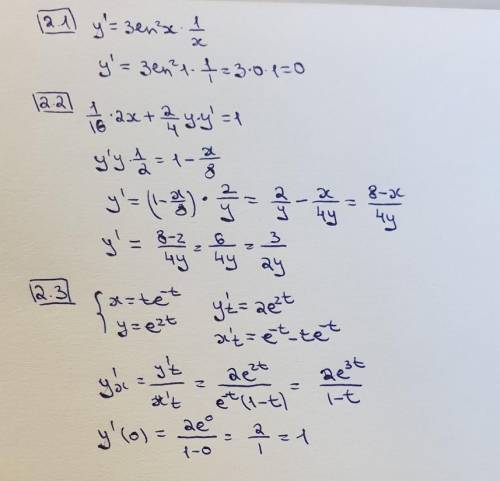 2.1 y' = 3ln²x · 1/x
y' = 3ln²1 · 1/1 = 3·0·1 = 0
2.2 1/16 · 2x + 2/4 y·y' = 1
y'y · 1/2 = 1 - x/8
y' = (1 - x/8) · 2/y = 2/y - x/4y = 8-x/4y
y' = 8-2/4y = 6/4y = 3/2y
2.3 { x = te^-t y't = 2e^2t
y = e^2t x't = e^-t - te^-t
y'x = y't/x't = 2e^2t/e^-t(1-t) = 2e^3t/1-t
y'(0) = 2e^0/1-0 = 2/1 = 1